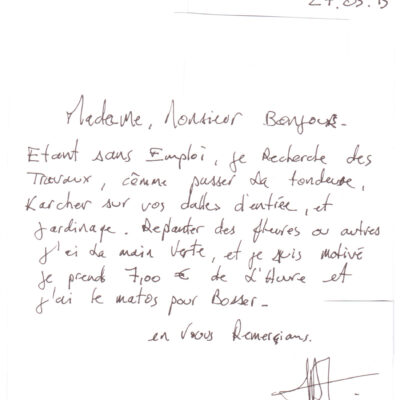 27.05.15
Madame, Monsieur Bonjour.
Etant sans Emploi, je Recherche des
Travaux, cômme passer la tondeuse,
Karcher sur vos dalles d'entrée, et
jardinage. Replanter des fheures ou autres
j'ai la main Verte, et je suis motivé
je prends 7,00 € de L'Heure et
j'ai le matos pour Bosser-
en Vous Remerçians.